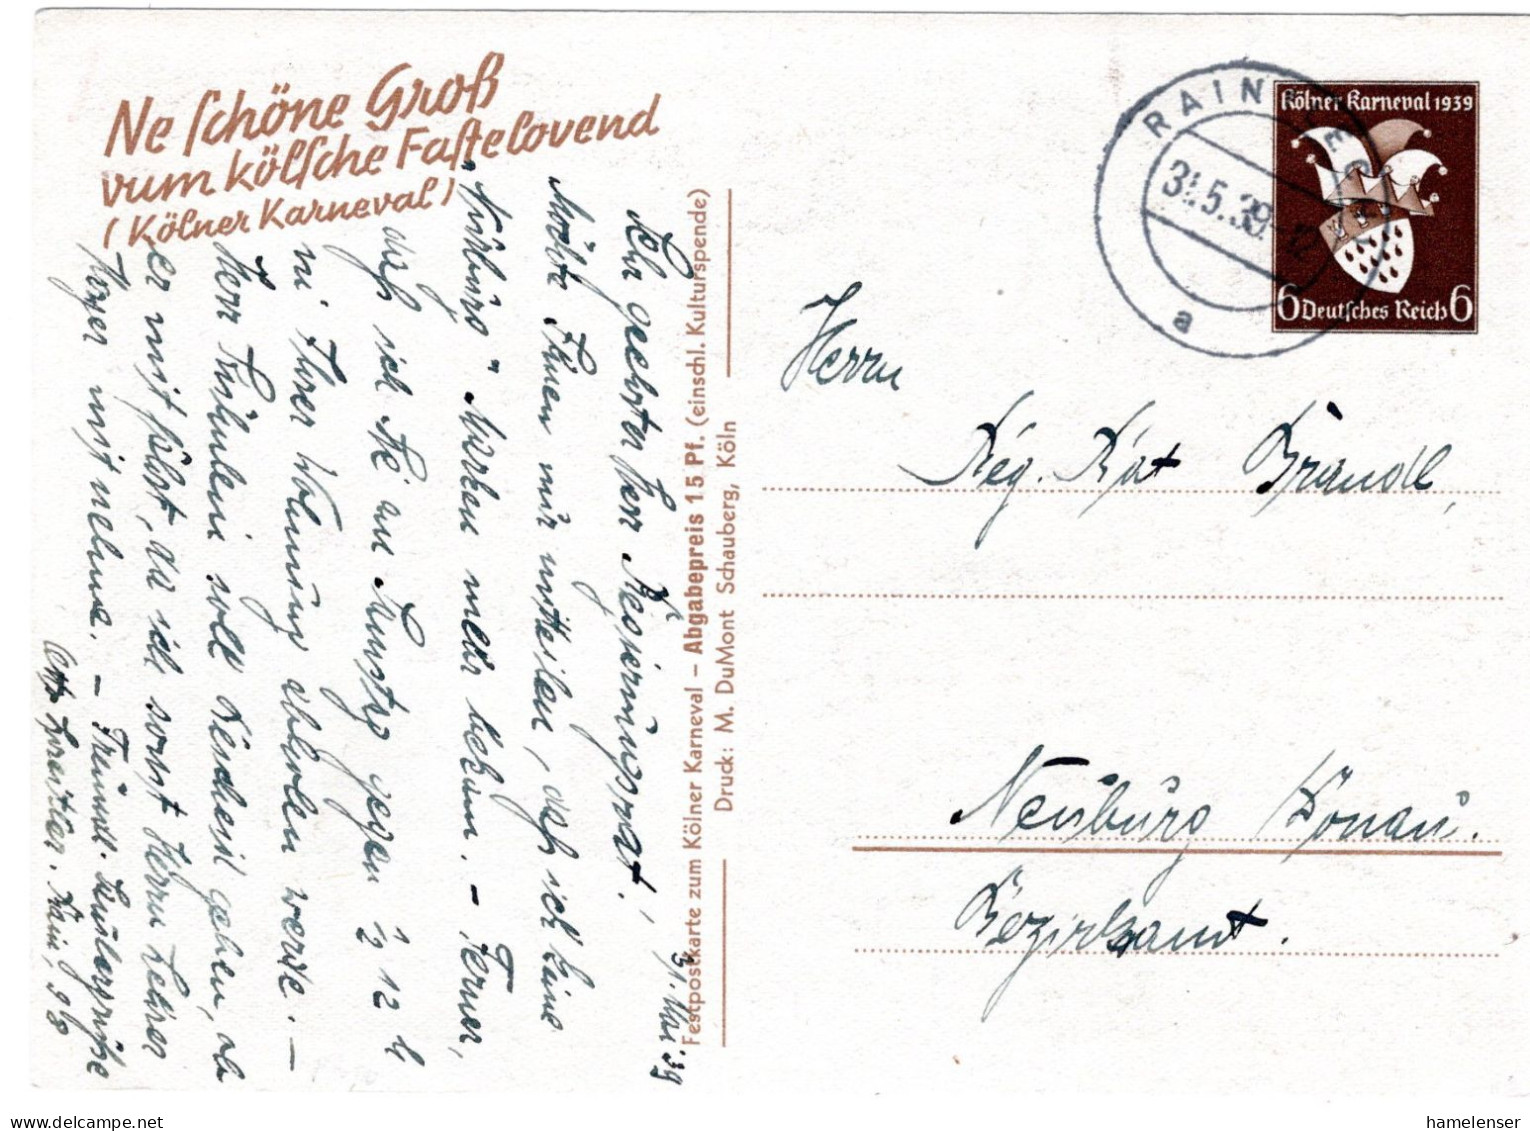 Ne schöne Groß
vum kölsche Fastelovend
(Kölner Karneval)
31. Mai 39
Sehr geehrter Herr Regierungsrat!
Möchte Ihnen nur mitteilen, daß ich keine
"Nürburg" Marken mehr bekam. – Ferner,
daß ich Sie am Samstag gegen ½ 12 h
in Ihrer Wohnung abholen werde. –
Herr soll Bescheid geben, ob
er mit fährt, da ich sonst Herrn Lehrer
mit nehme. – Freundl.
Rain, 98
Festpostkarte zum Kölner Karneval – Abgabepreis 15 Pf. (einschl. Kulturspende)
Druck: M. DuMont Schauberg, Köln
RAIN
31.5.39.-12
a
Kölner Karneval 1939
6 Deutsches Reich 6
Herrn
Reg. Rat Brandl,
Neuburg Donau.
Bezirksamt.
hamelenser